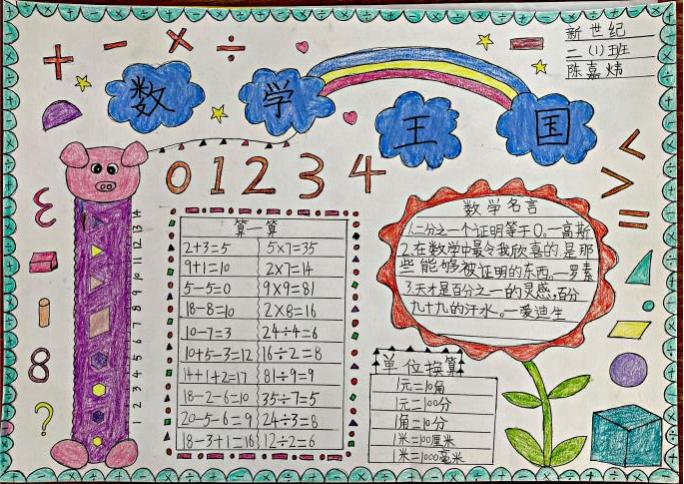 + - × ÷
新世纪
二(1)班
陈嘉
数学王国
0 1 2 3 4
<
>
=
3
8
?
1 2 3 4 5 6 7 8 9 10 11 12 13 14
算一算
2+3=5 5×7=35
9+1=10 2×7=14
5-5=0 9×9=81
18-8=10 2×8=16
10-7=3 24÷4=6
10+5-3=12 16÷2=8
14+1+2=17 81÷9=9
18-2-6=10 35÷7=5
20-5-6=9 24÷3=8
18-3+1=16 12÷2=6
数学名言
1.二分之一个证明等于0.—高斯
2.在数学中最令我欣喜的是那
些能够被证明的东西.—罗素
3.天才是百分之一的灵感,百分
九十九的汗水.—爱迪生
单位换算
1元=10角
1元=100分
1角=10分
1米=100厘米
1米=1000毫米